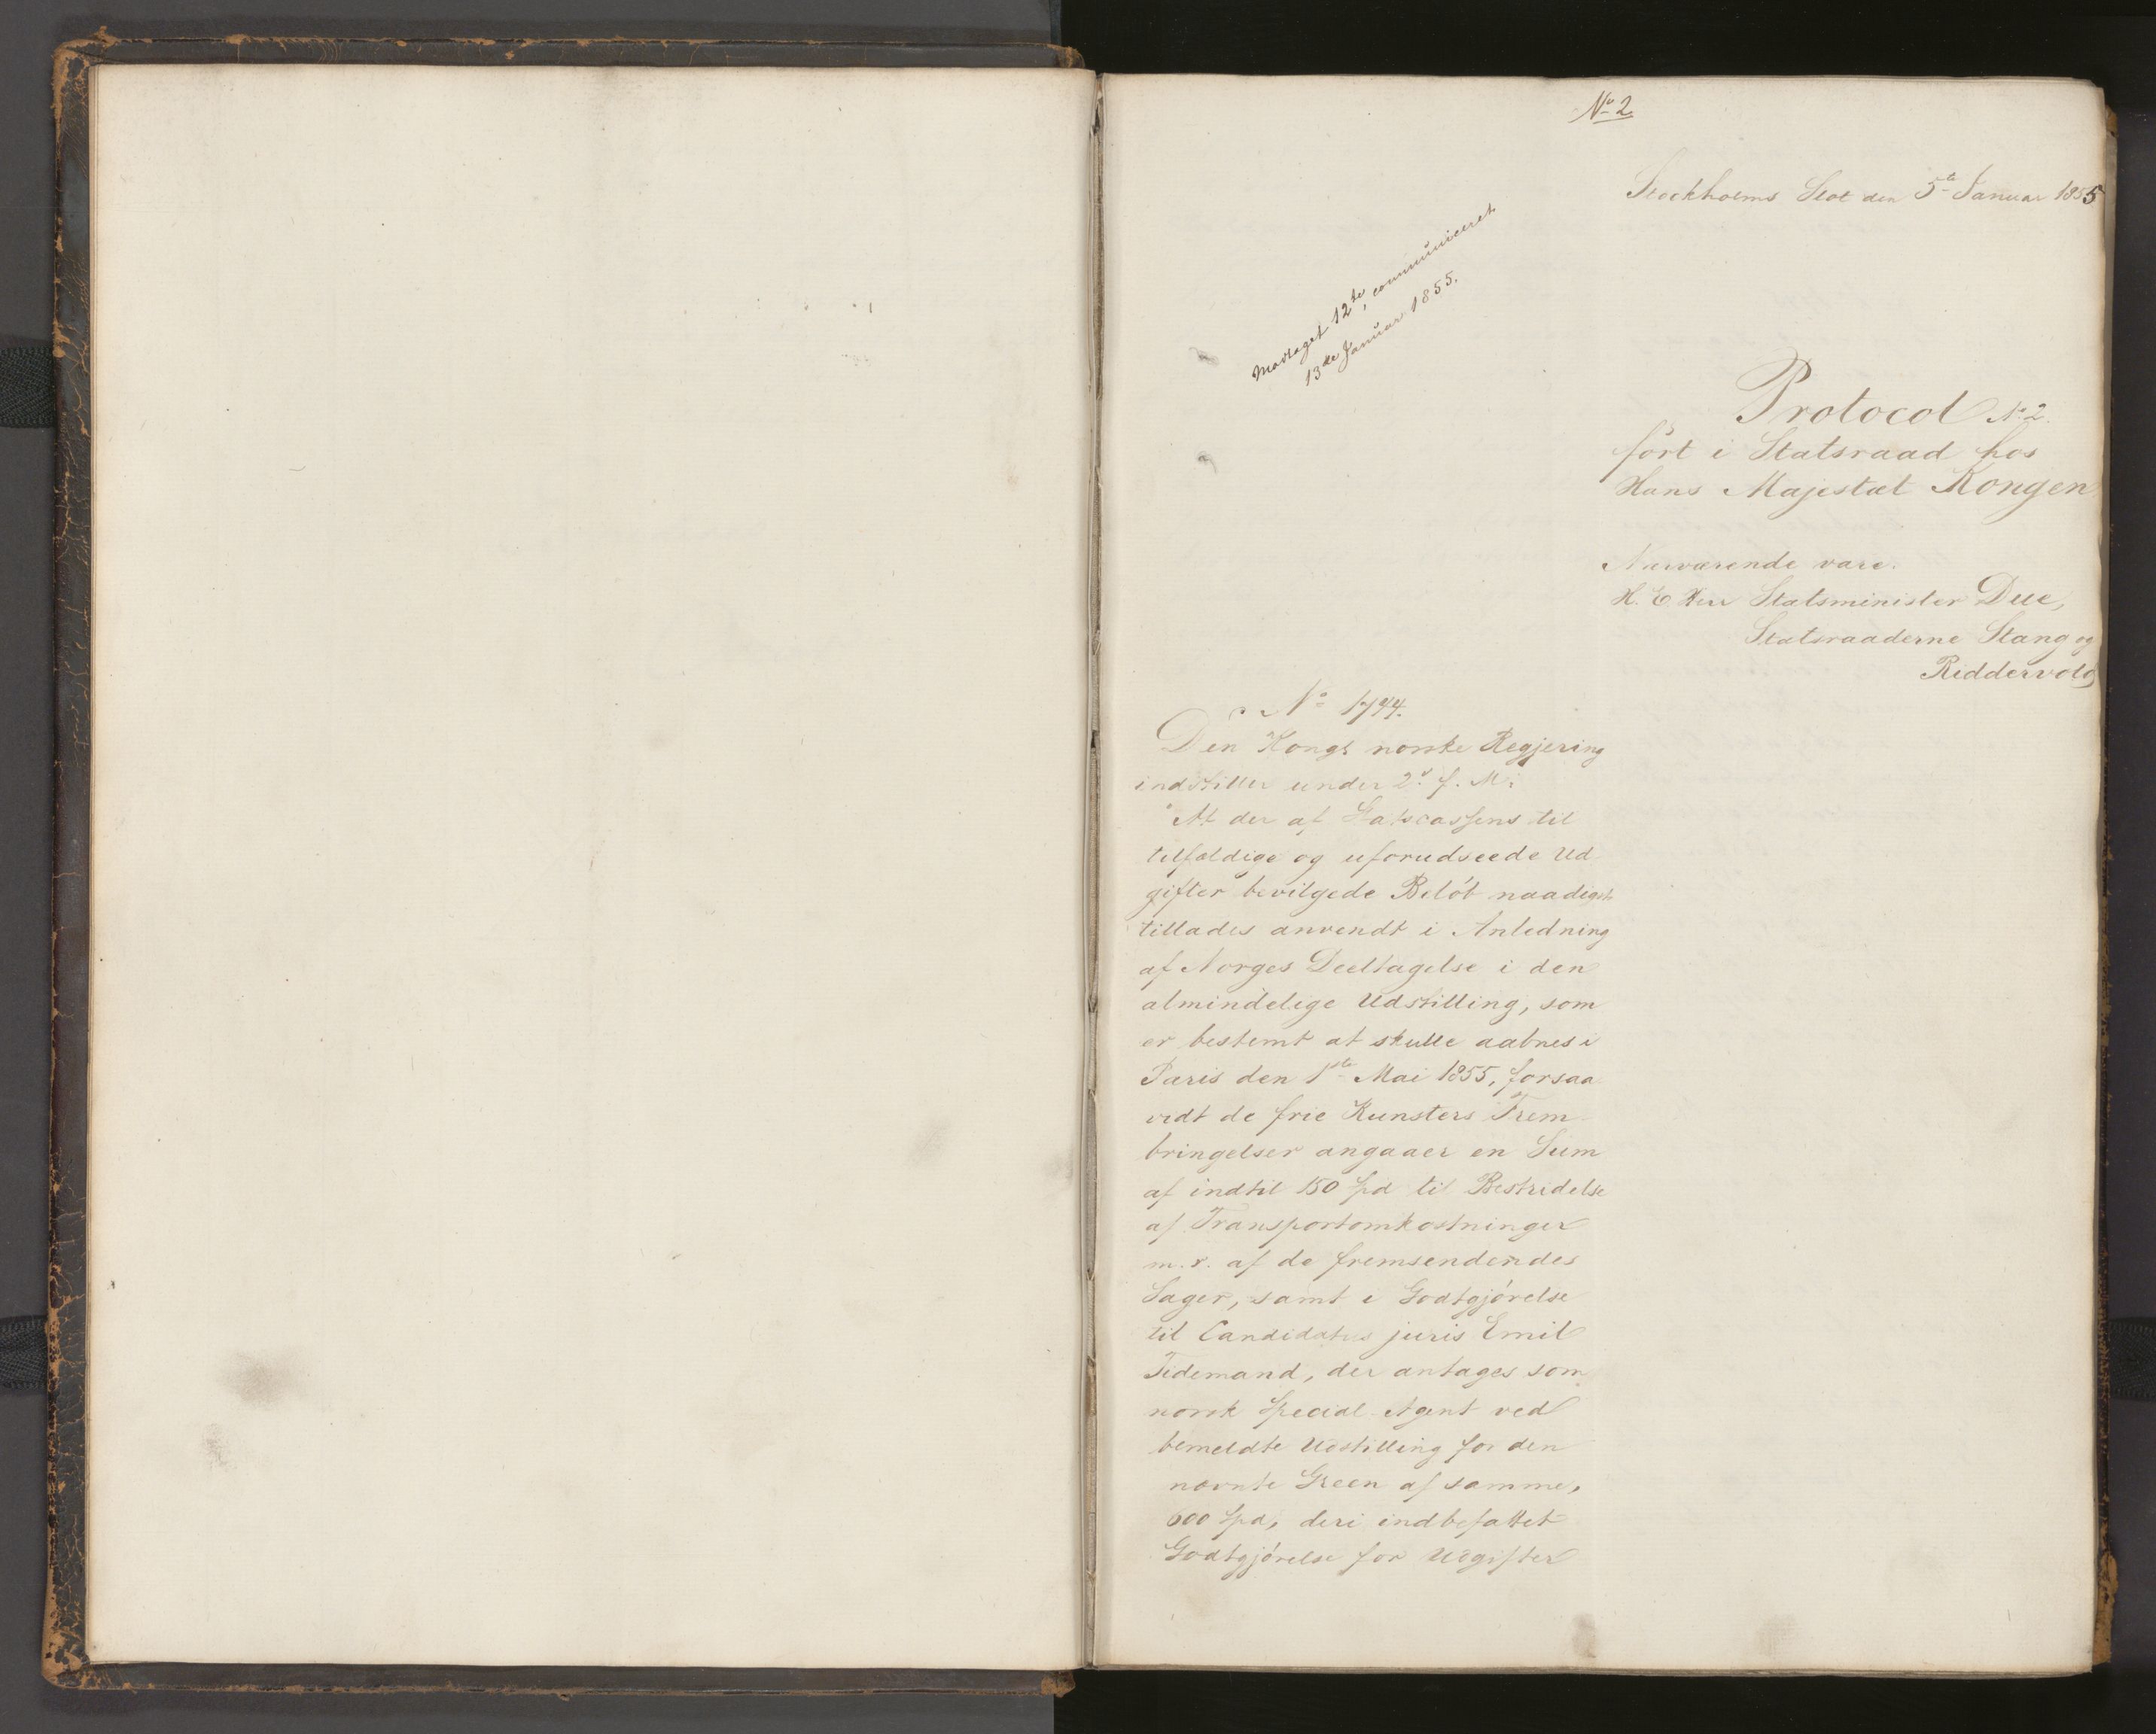 No 2
Stockholms Slot den 5te Januar 1855
Modtaget 12te, communiceret
13de Januar 1855.
Protocol No 2.
fört i Statsraad hos
Hans Majestæt Kongen
Nærværende vare.
H. E. Herr Statsminister Due,
Statsraaderne Stang og
Riddervold
No 1744.
Den Kongl norske Regjering
indstiller under 2d f. M.
"At der af Statscassens til
tilfældige og uforudseede Ud
gifter bevilgede Belöb naadigst
tillades anvendt i Anledning
af Norges Deeltagelse i den
almindelige Udstilling, som
er bestemt at skulle aabnes i
Paris den 1ste Mai 1855, forsaa
vidt de frie Kunsters Frem
bringelser angaaer en Sum
af indtil 150 Spd til Bestridelse
af Transportomkostninger
m. v. af de fremsendendes
Sager, samt i Godtgjörelse
til Candidatus juris Emil
Tidemand, der antages som
norsk Special-Agent ved
bemeldte Udstilling for den
nævnte Green af samme,
600 Spd, deri indbefattet
Godtgjörelse for Udgifter